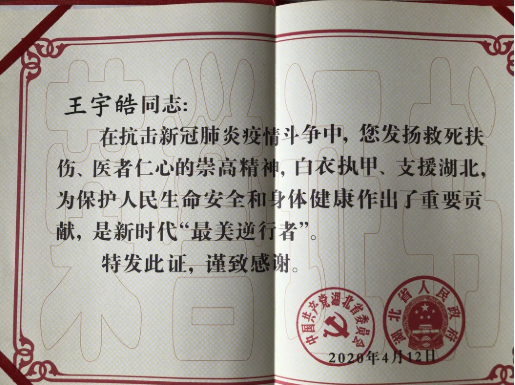 王宇皓同志:
在抗击新冠肺炎疫情斗争中,您发扬救死扶
伤、医者仁心的崇高精神,白衣执甲、支援湖北,
为保护人民生命安全和身体健康作出了重要贡
献,是新时代“最美逆行者”。
特发此证,谨致感谢。
中国共产党湖北省委员会
湖北省人民政府
2020年4月12日